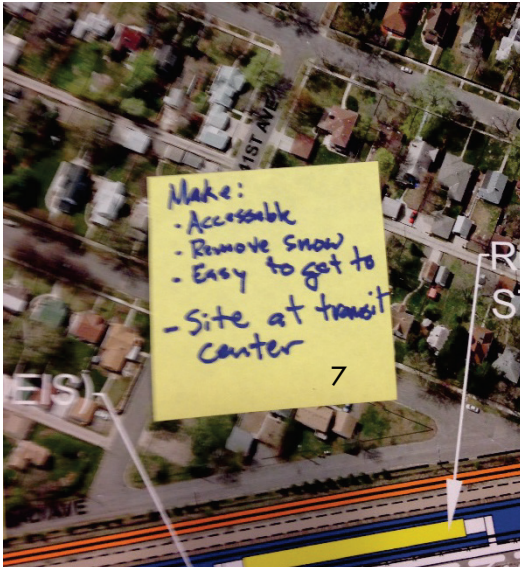 41ST AVE
Make:
· Accessable
· Remove Snow
· Easy to get to
- Site at transit
center
7
R
S
EIS)
AVE